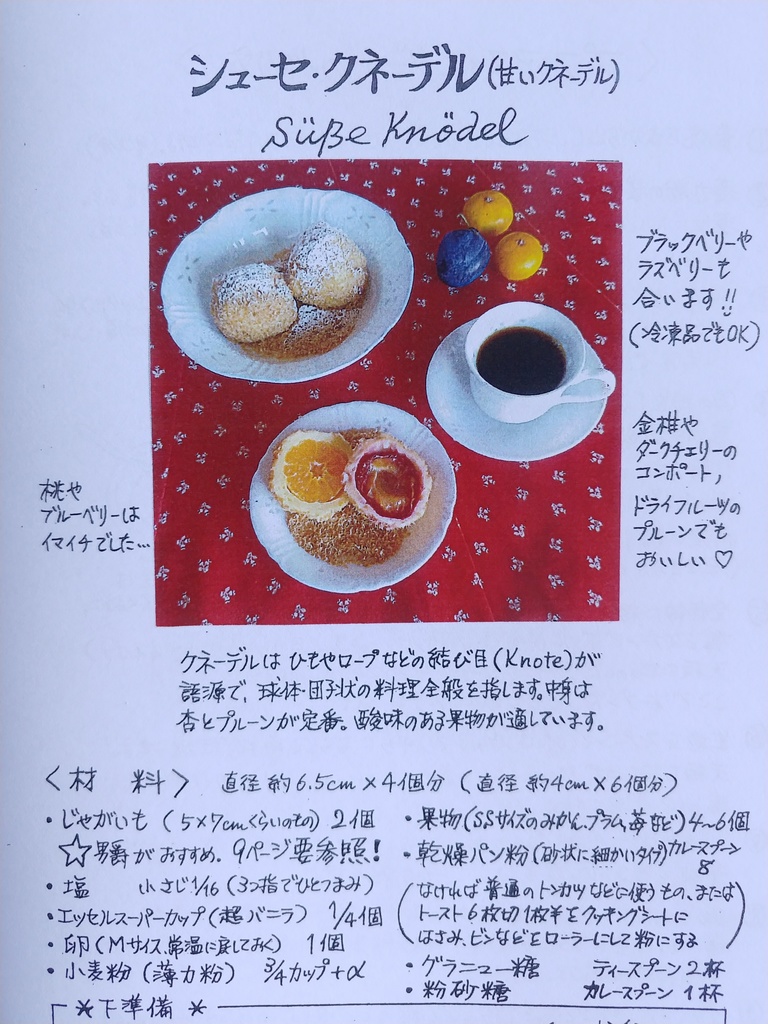 シューセ・クネーデル(甘いクネーデル)
Süße Knödel
ブラックベリーや
ラズベリーも
合います!!
(冷凍品でもOK)
金柑や
ダークチェリーの
コンポート,
ドライフルーツの
プルーンでも
おいしい♡
桃や
ブルーベリーは
イマイチでした…
クネーデルは ひもやロープなどの結び目(Knote)が
語源で、球体・団子状の料理全般を指します。中身は
杏とプルーンが定番。酸味のある果物が適しています。
<材 料> 直径 約6.5cm×4個分(直径 約4cm×6個分)
・じゃがいも(5×7cmくらいのもの) 2個
☆男爵がおすすめ。9ページ要参照!
・塩 小さじ1/16(3つ指でひとつまみ)
・エッセルスーパーカップ(超バニラ) 1/4個
・卵(Mサイズ、常温に戻しておく) 1個
・小麦粉(薄力粉) 3/4カップ+α
・果物(SSサイズのみかん、プラム、苺など)4~6個
・乾燥パン粉(砂状に細かいタイプ)カレースプーン
8
(なければ 普通のトンカツなどに使うもの、または
トースト6枚切1枚半をクッキングシートに
はさみ、ビンなどをローラーにして粉にする)
・グラニュー糖 ティースプーン2杯
・粉砂糖 カレースプーン1杯
*下準備*